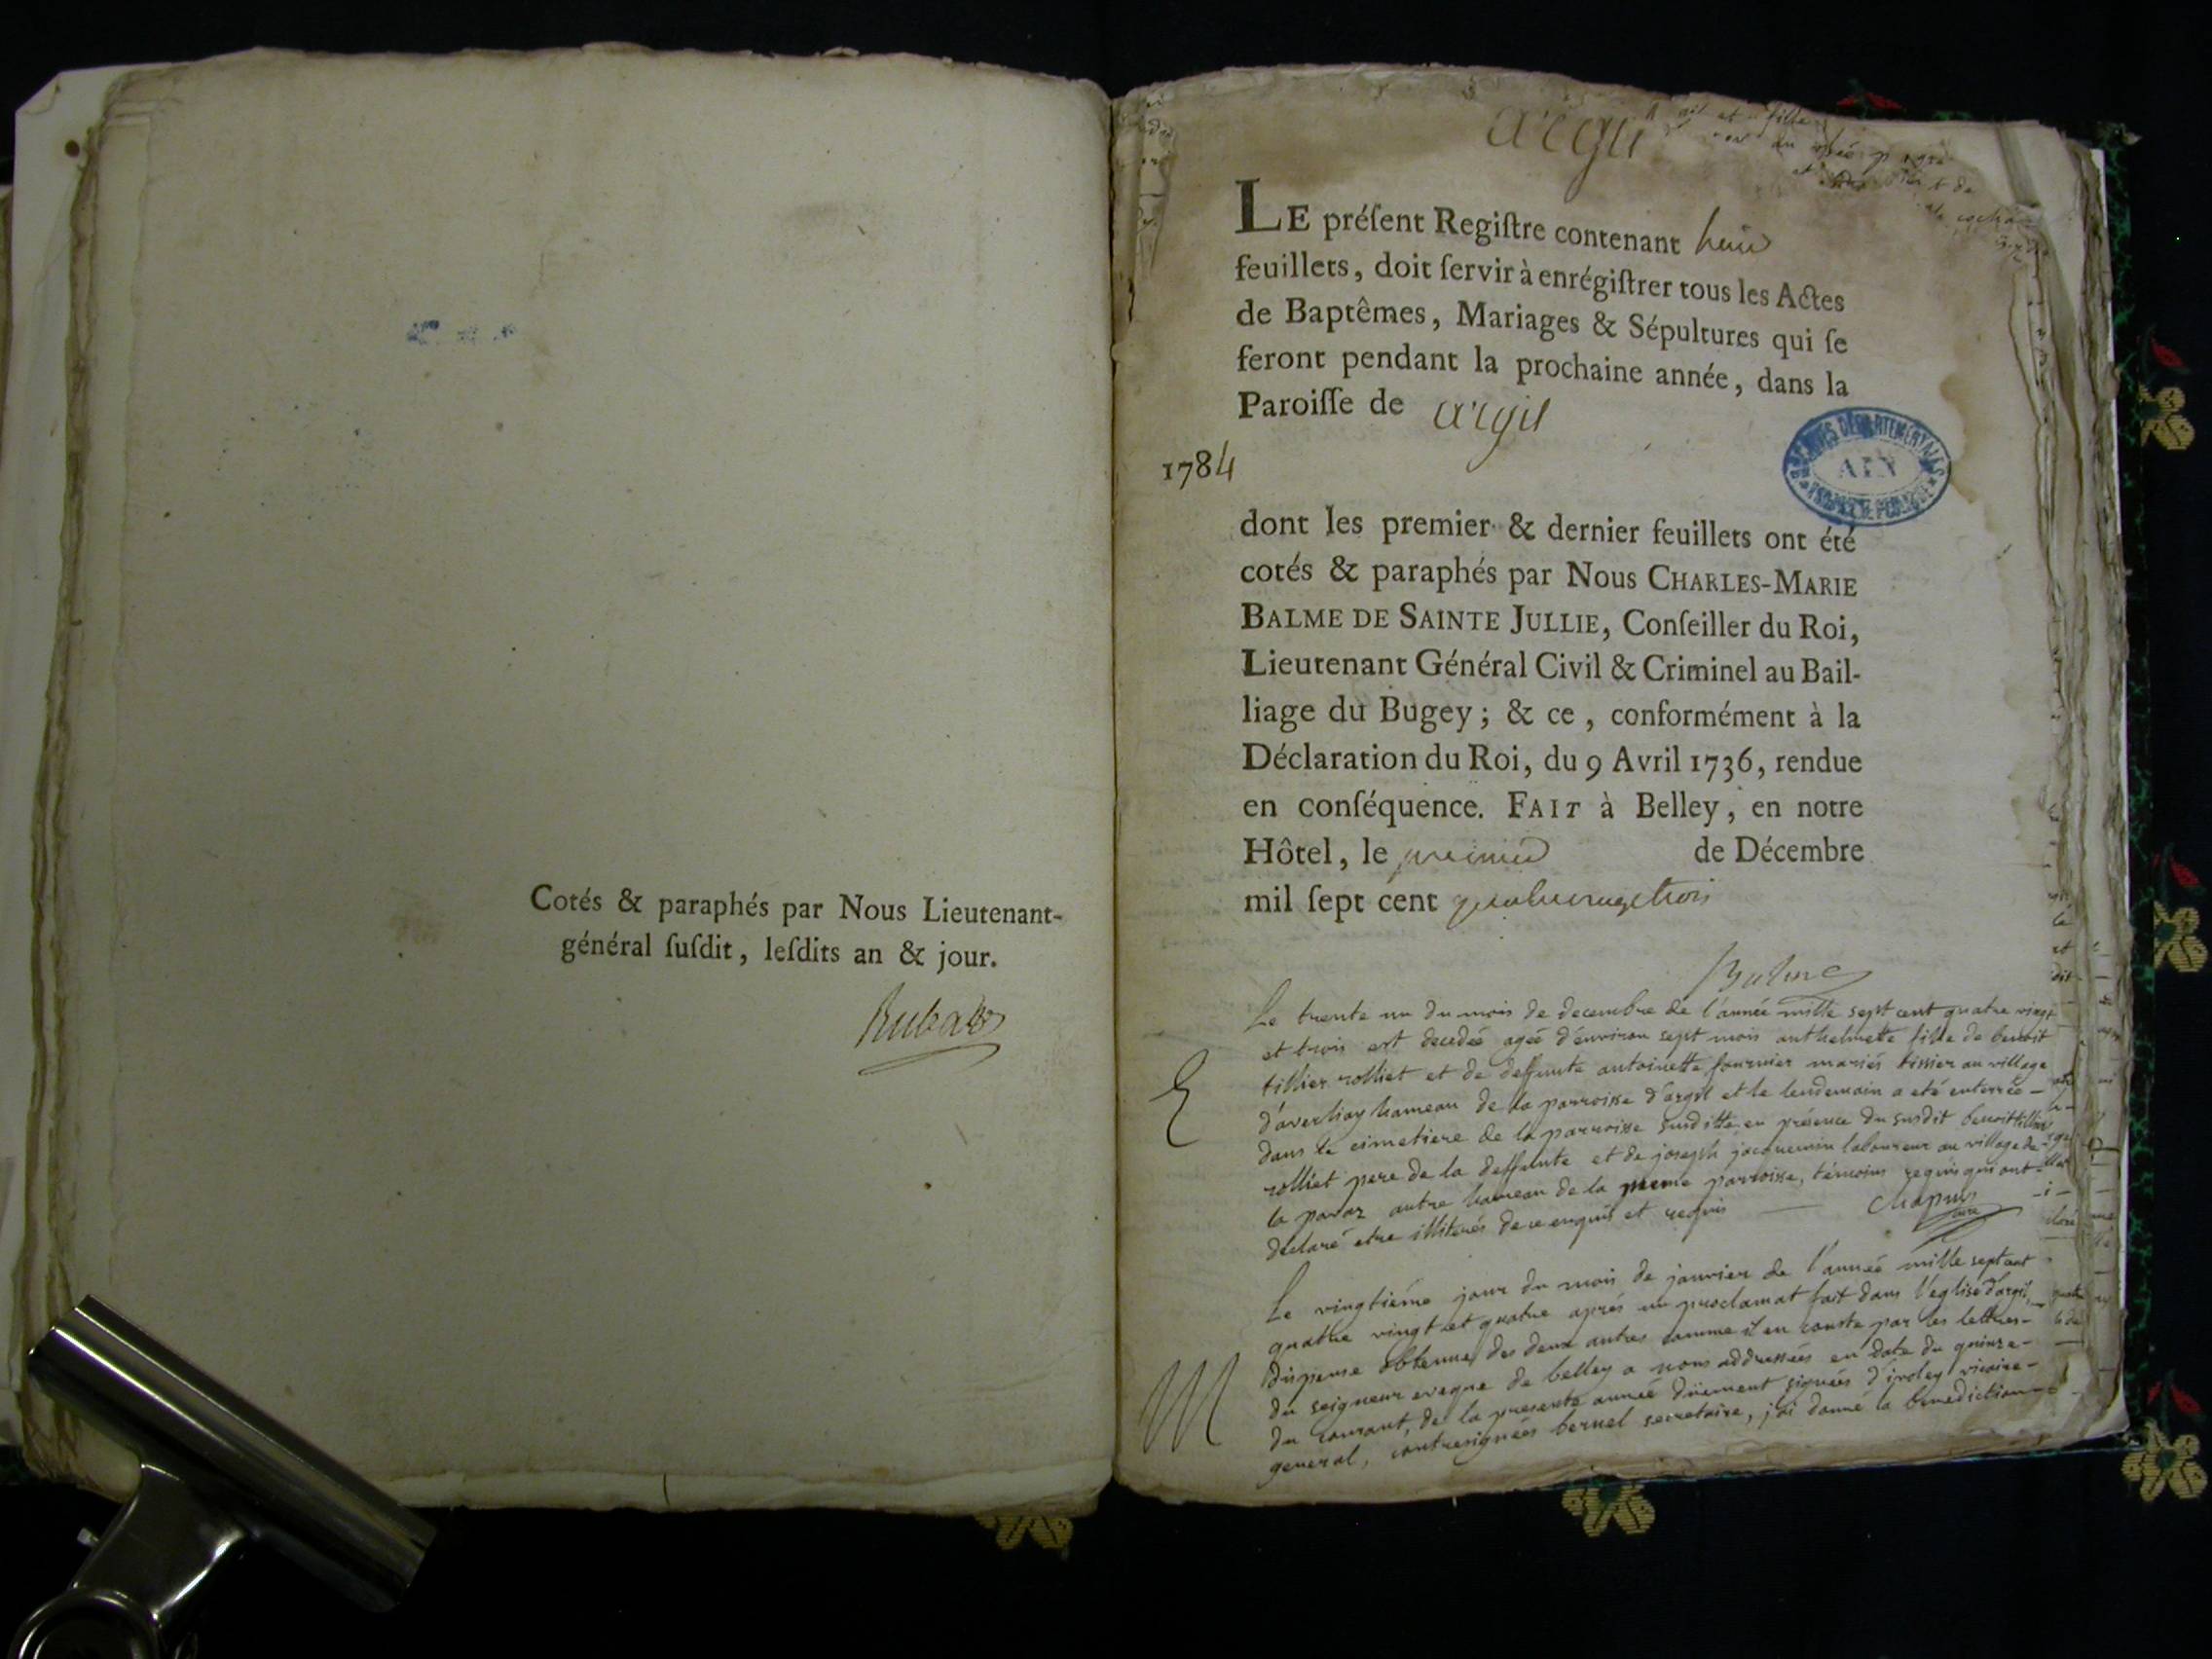 Cotés & paraphés par Nous Lieutenant-
général ſuſdit, leſdits an & jour.
argil
LE préſent Regiſtre contenant huit
feuillets, doit ſervir à enrégiſtrer tous les Actes
de Baptêmes, Mariages & Sépultures qui ſe
feront pendant la prochaine année, dans la
Paroiſſe de argil
1784
ARCHIVES DÉPARTEMENTALES
AIN
dont les premier & dernier feuillets ont été
cotés & paraphés par Nous CHARLES-MARIE
BALME DE SAINTE JULLIE, Conſeiller du Roi,
Lieutenant Général Civil & Criminel au Bail-
liage du Bugey; & ce, conformément à la
Déclaration du Roi, du 9 Avril 1736, rendue
en conſéquence. FAIT à Belley, en notre
Hôtel, le premier de Décembre
mil ſept cent quatrevingttrois
Balme
Le trente un du mois de decembre de l'année mille sept cent quatre vingt
et trois est decedée agée d'environ sept mois anthelmette fille de benoit
tillier rolliet et de deffunte antoinette fournier mariés tissier au village
d'averliay hameau de la parroisse d'argil et le lendemain a eté enterrée -
E
dans le cimetiere de la parroisse susditte en présence du susdit benoit tillier
rolliet pere de la deffunte et de joseph jacquemin laboureur au village de
la pavaz autre hameau de la meme parroisse, témoins requis qui ont
declaré etre illiterés de ce enquis et requis Chapuis curé
Le vingtiéme jour du mois de janvier de l'année mille sept cent
quatre vingt et quatre aprés un proclamat fait dans l'eglise d'argil,
dispense obtenue des deux autres comme il en conste par les lettres-
du seigneur eveque de belley a nous addressées en date du quinze-
M
du courant, de la presente année düement signées d'ivoley vicaire-
general, contresignées bernel secretaire, j'ai donné la benediction